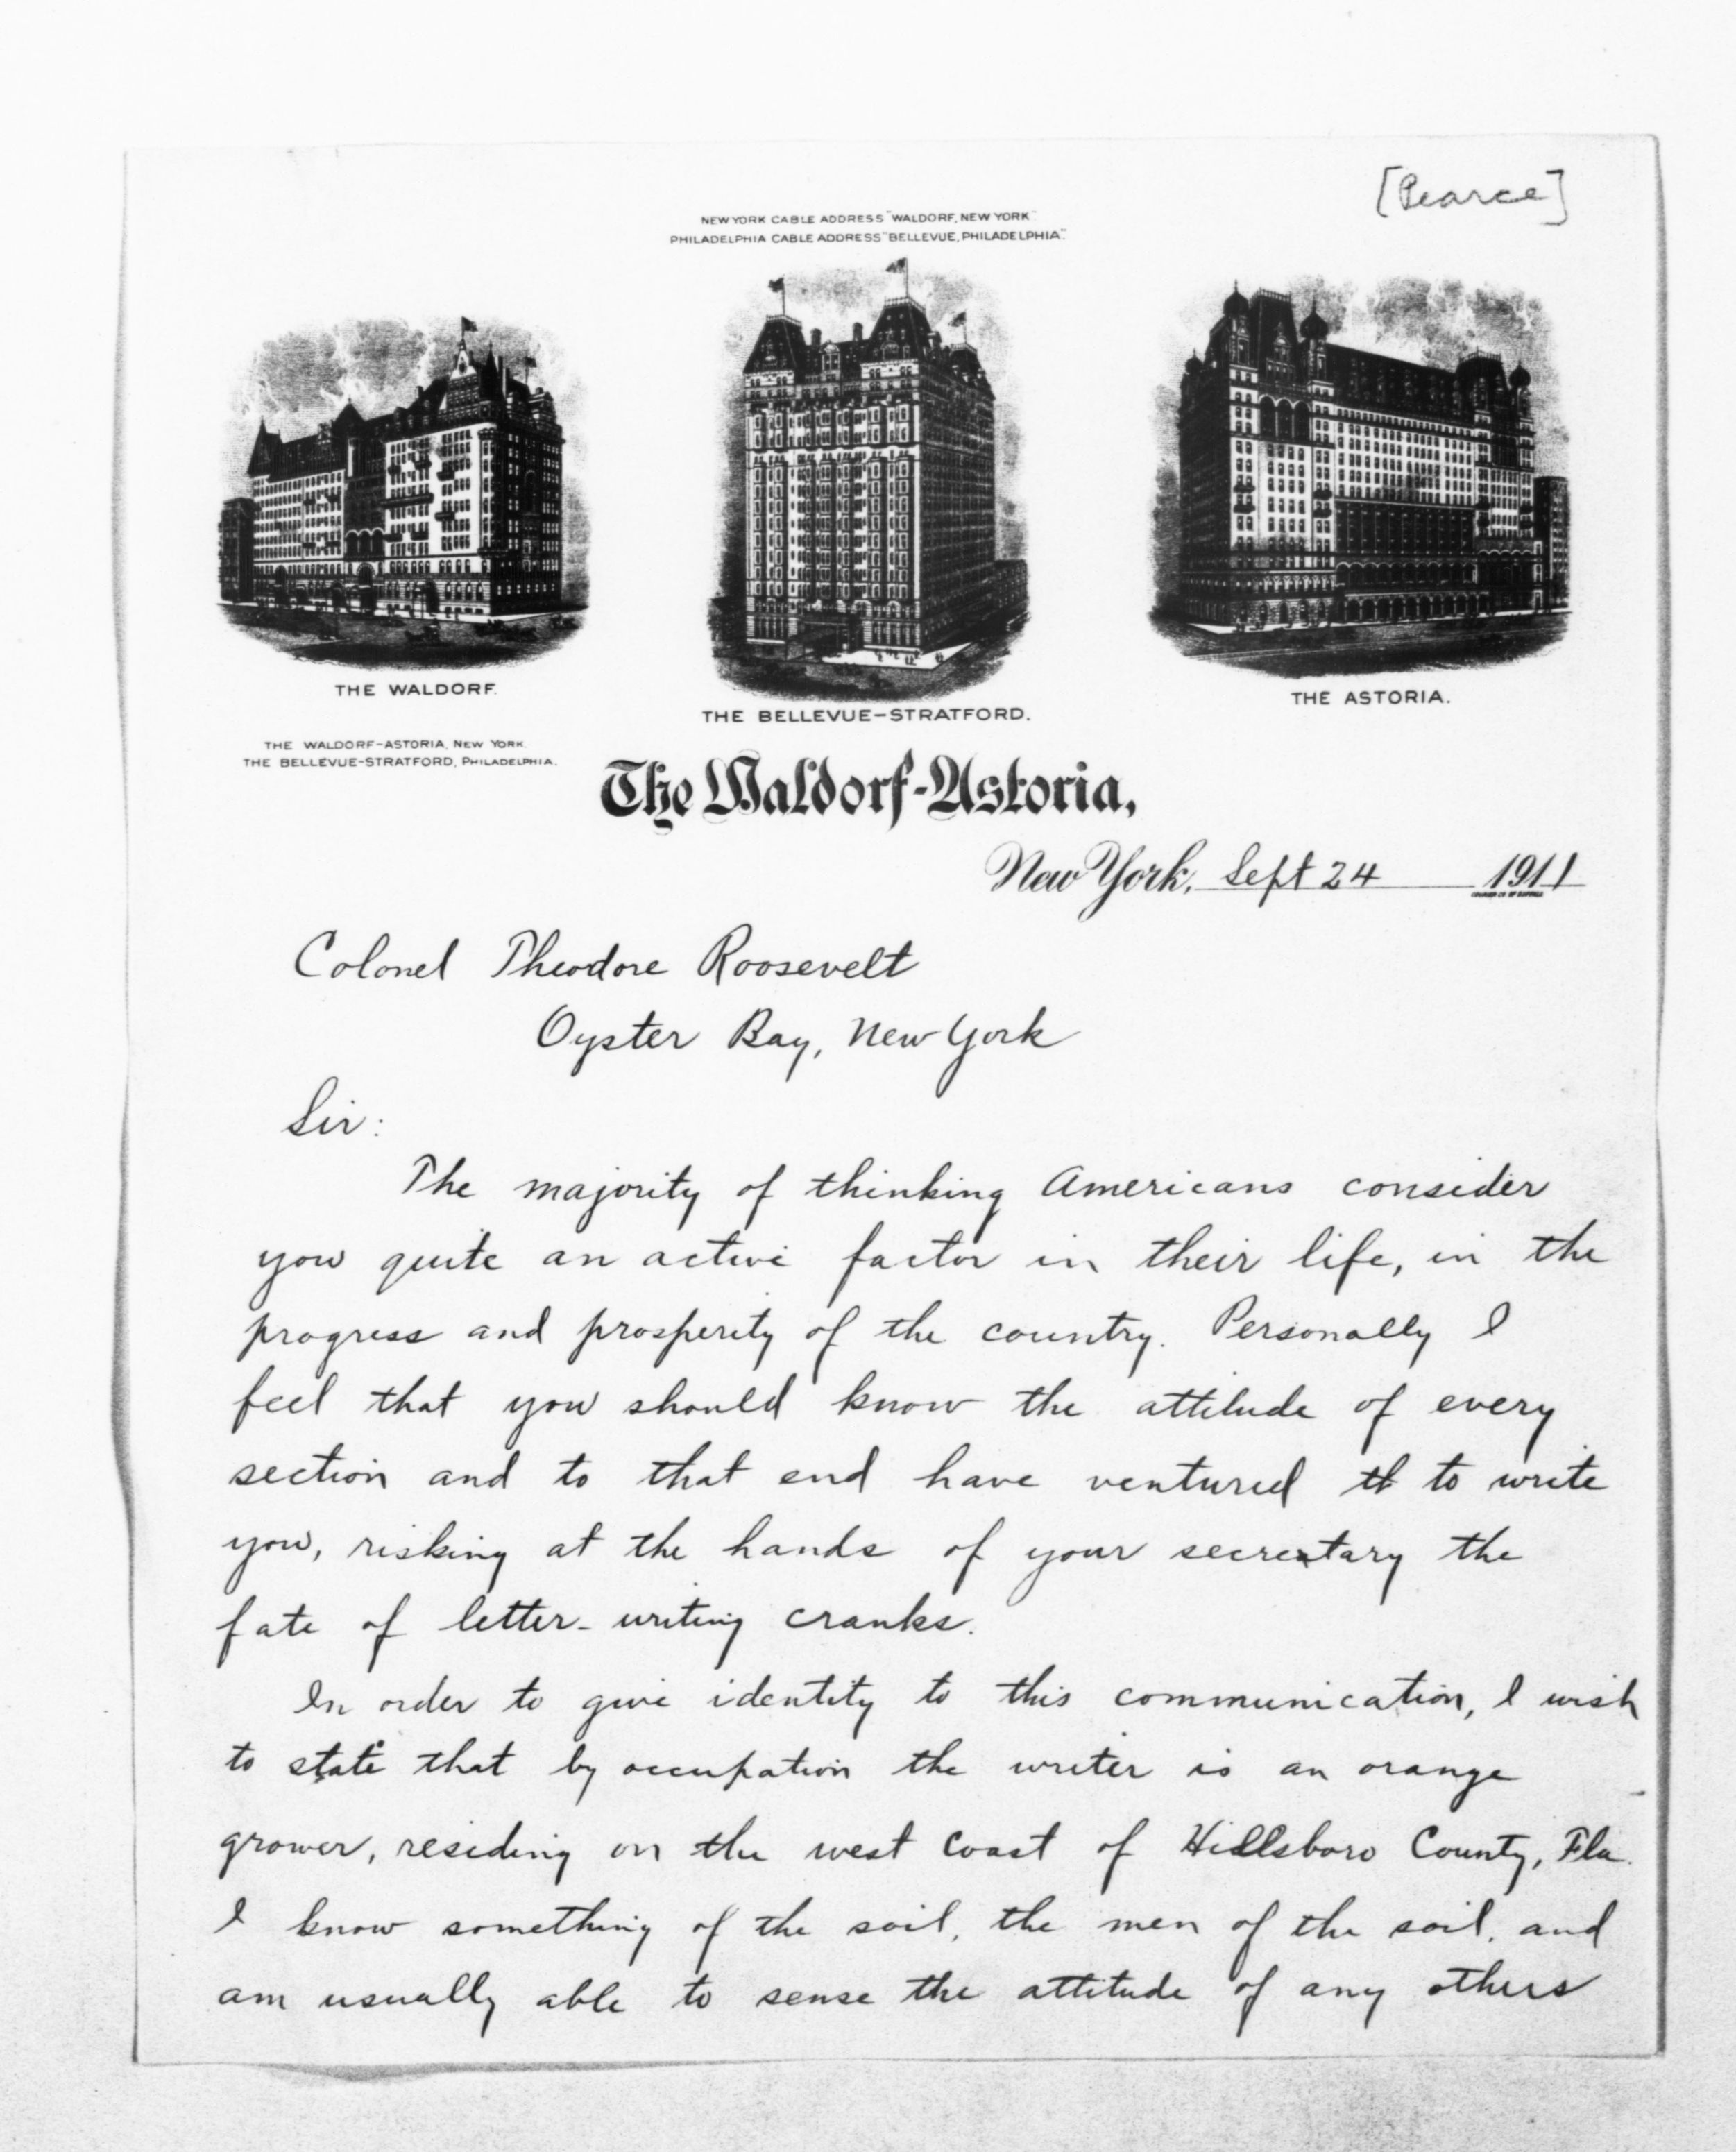 [Pearce]
NEW YORK CABLE ADDRESS "WALDORF, NEW YORK"
PHILADELPHIA CABLE ADDRESS "BELLEVUE, PHILADELPHIA".
THE WALDORF.
THE BELLEVUE-STRATFORD.
THE ASTORIA.
THE WALDORF-ASTORIA, NEW YORK.
THE BELLEVUE-STRATFORD, PHILADELPHIA.
The Waldorf-Astoria,
New York, Sept 24 1911
Colonel Theodore Roosevelt
Oyster Bay, New York
Sir:
The majority of thinking Americans consider
you quite an active factor in their life, in the
progress and prosperity of the country. Personally I
feel that you should know the attitude of every
section and to that end have ventured th to write
you, risking at the hands of your secretary the
fate of letter-writing cranks.
In order to give identity to this communication, I wish
to state that by occupation the writer is an orange
grower, residing on the west coast of Hillsboro County, Fla.
I know something of the soil, the men of the soil, and
am usually able to sense the attitude of any others